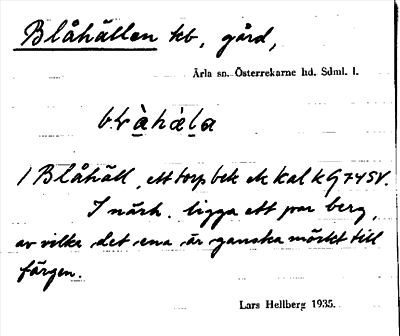 Blåhällen kb, gård,
Ärla sn. Österrekarne hd. Sdml. l.
bråhäla
1 Blåhäll, ett torp bek ek Kal k G 74 SV.
I närh. ligga ett par berg,
av vilka det ena är ganska mörkt till
färgen.
Lars Hellberg 1935.